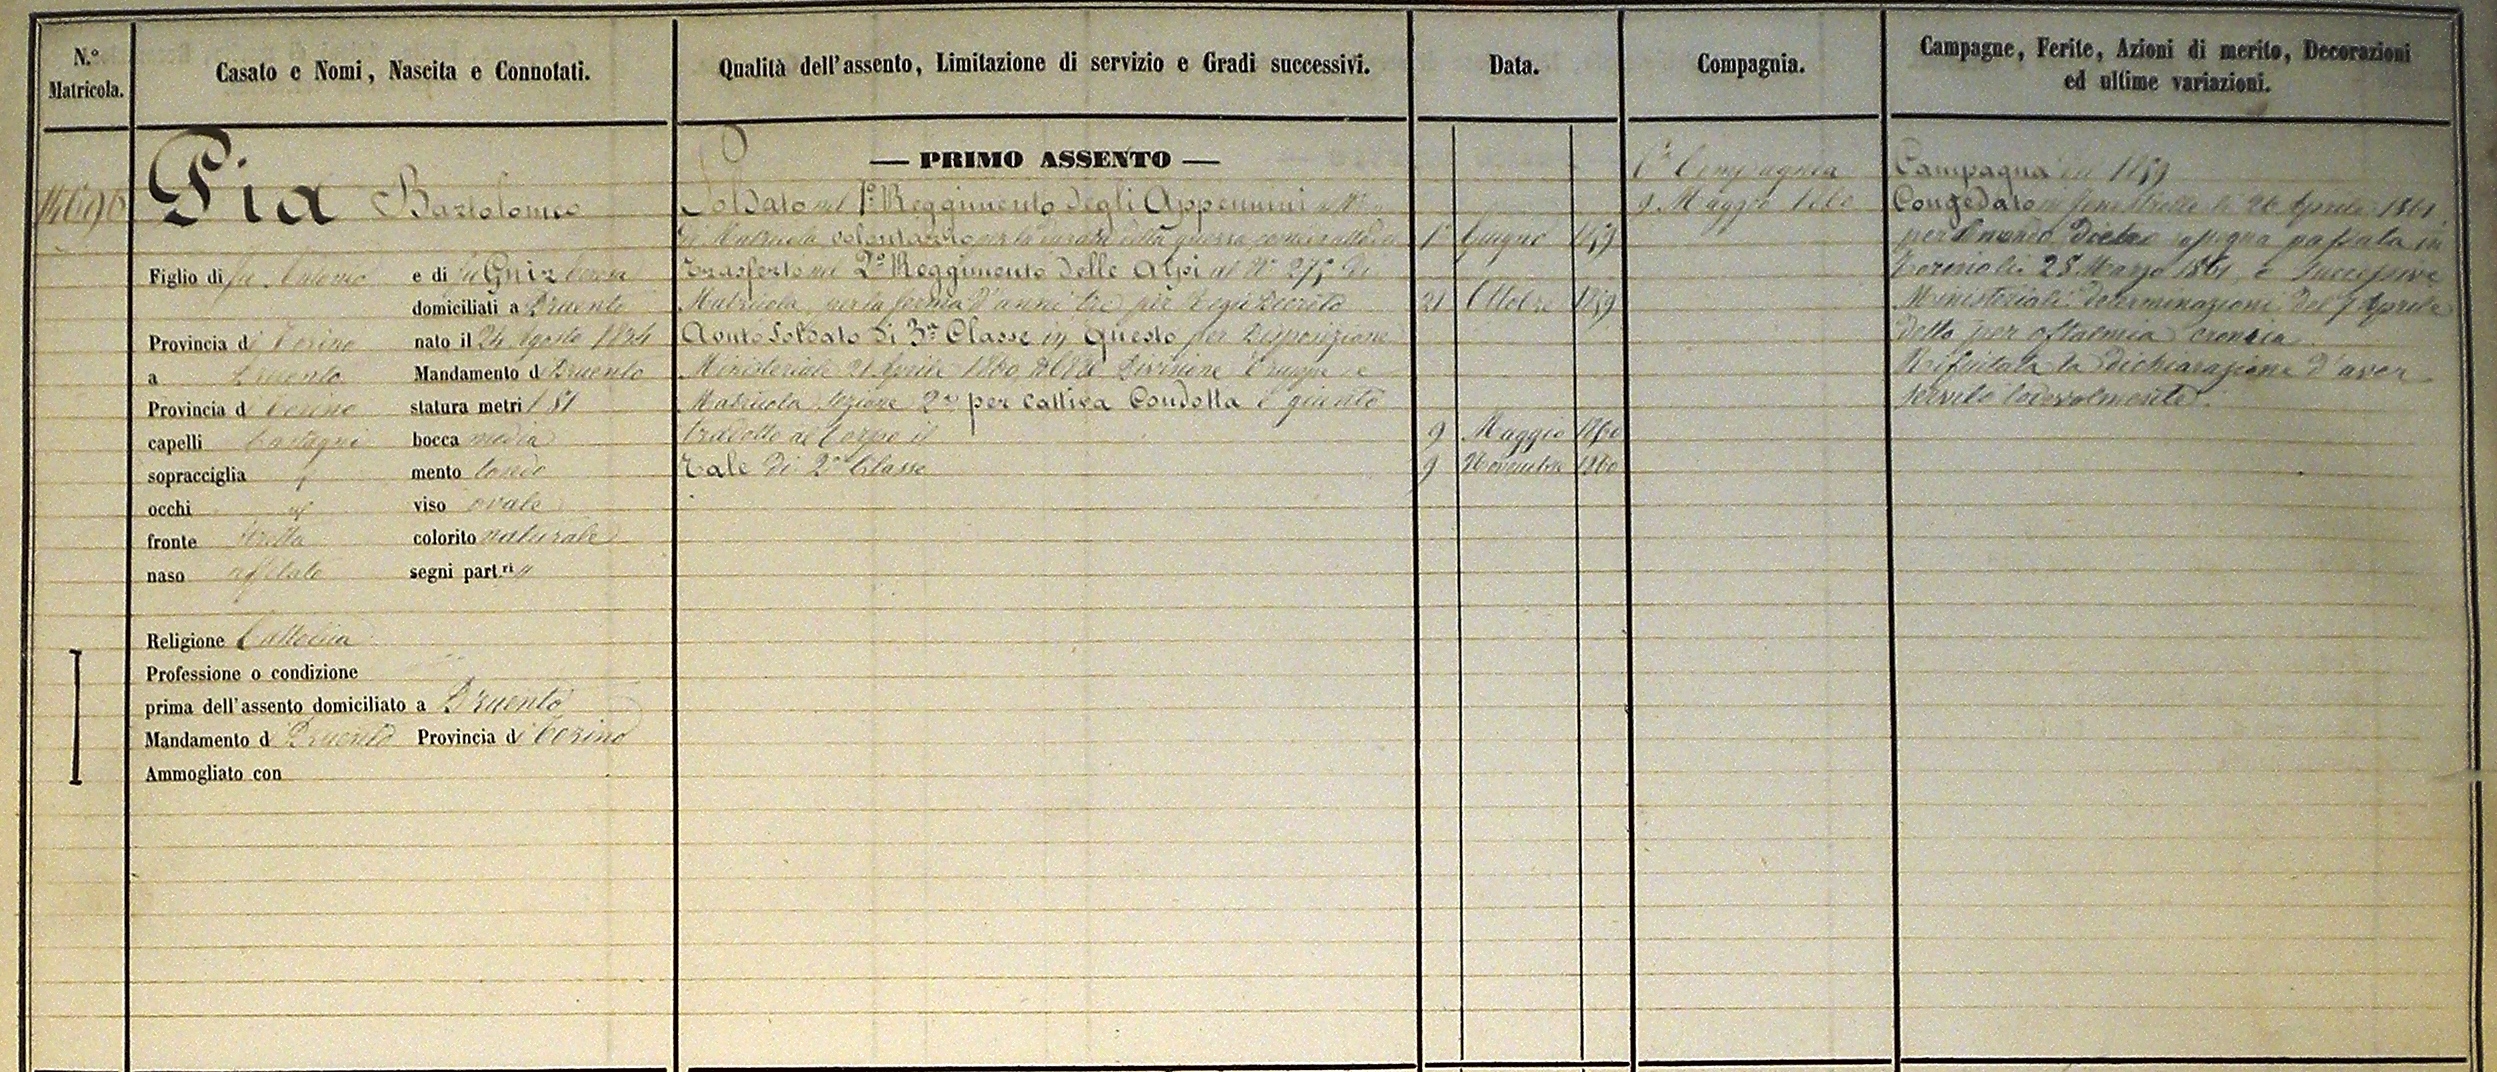 N.º Matricola.
Casato e Nomi, Nascita e Connotati.
Qualità dell'assento, Limitazione di servizio e Gradi successivi.
Data.
Compagnia.
Campagne, Ferite, Azioni di merito, Decorazioni
ed ultime variazioni.
14696
Pia Bartolomeo
Figlio di fu Antonio e di fu
domiciliati a Druento
Provincia di Torino nato il 24 Agosto 1834
a Druento Mandamento d Druento
Provincia di Torino statura metri 1 51
capelli Castagni bocca media
sopracciglia mento tondo
occhi viso ovale
fronte stretta colorito naturale
naso affilato segni part.ri "
Religione Cattolica
Professione o condizione
prima dell'assento domiciliato a Druento
Mandamento d Druento Provincia di Torino
Ammogliato con
— PRIMO ASSENTO —
Soldato nel 1º Reggimento degli Appennini al Nº
di Matricola volontario per la durata della guerra
Trasferto nel 2º Reggimento delle Alpi al Nº 275 di
Matricola per la ferma d'anni tre per Regio Decreto
Avuto Soldato di 3ª Classe in questo per Disposizione
Ministeriale 21 Aprile 1860 Divisione Truppe
Matricola Sezione 2ª per cattiva Condotta e giunto
tradotto al Corpo il
Tale di 2ª Classe
1º Giugno 1859
21 Ottobre 1859
9 Maggio 1860
9 Novembre 1860
Compagnia
9 Maggio 1860
Campagna del 1859
Congedato in Fenestrelle li 26 Aprile 1861
rassegna passata in
Torino li 28 Marzo 1861 e successiva
Ministeriale determinazione del 7 Aprile
detto per oftalmia cronica.
Rifiutata la dichiarazione d'aver
servito lodevolmente.